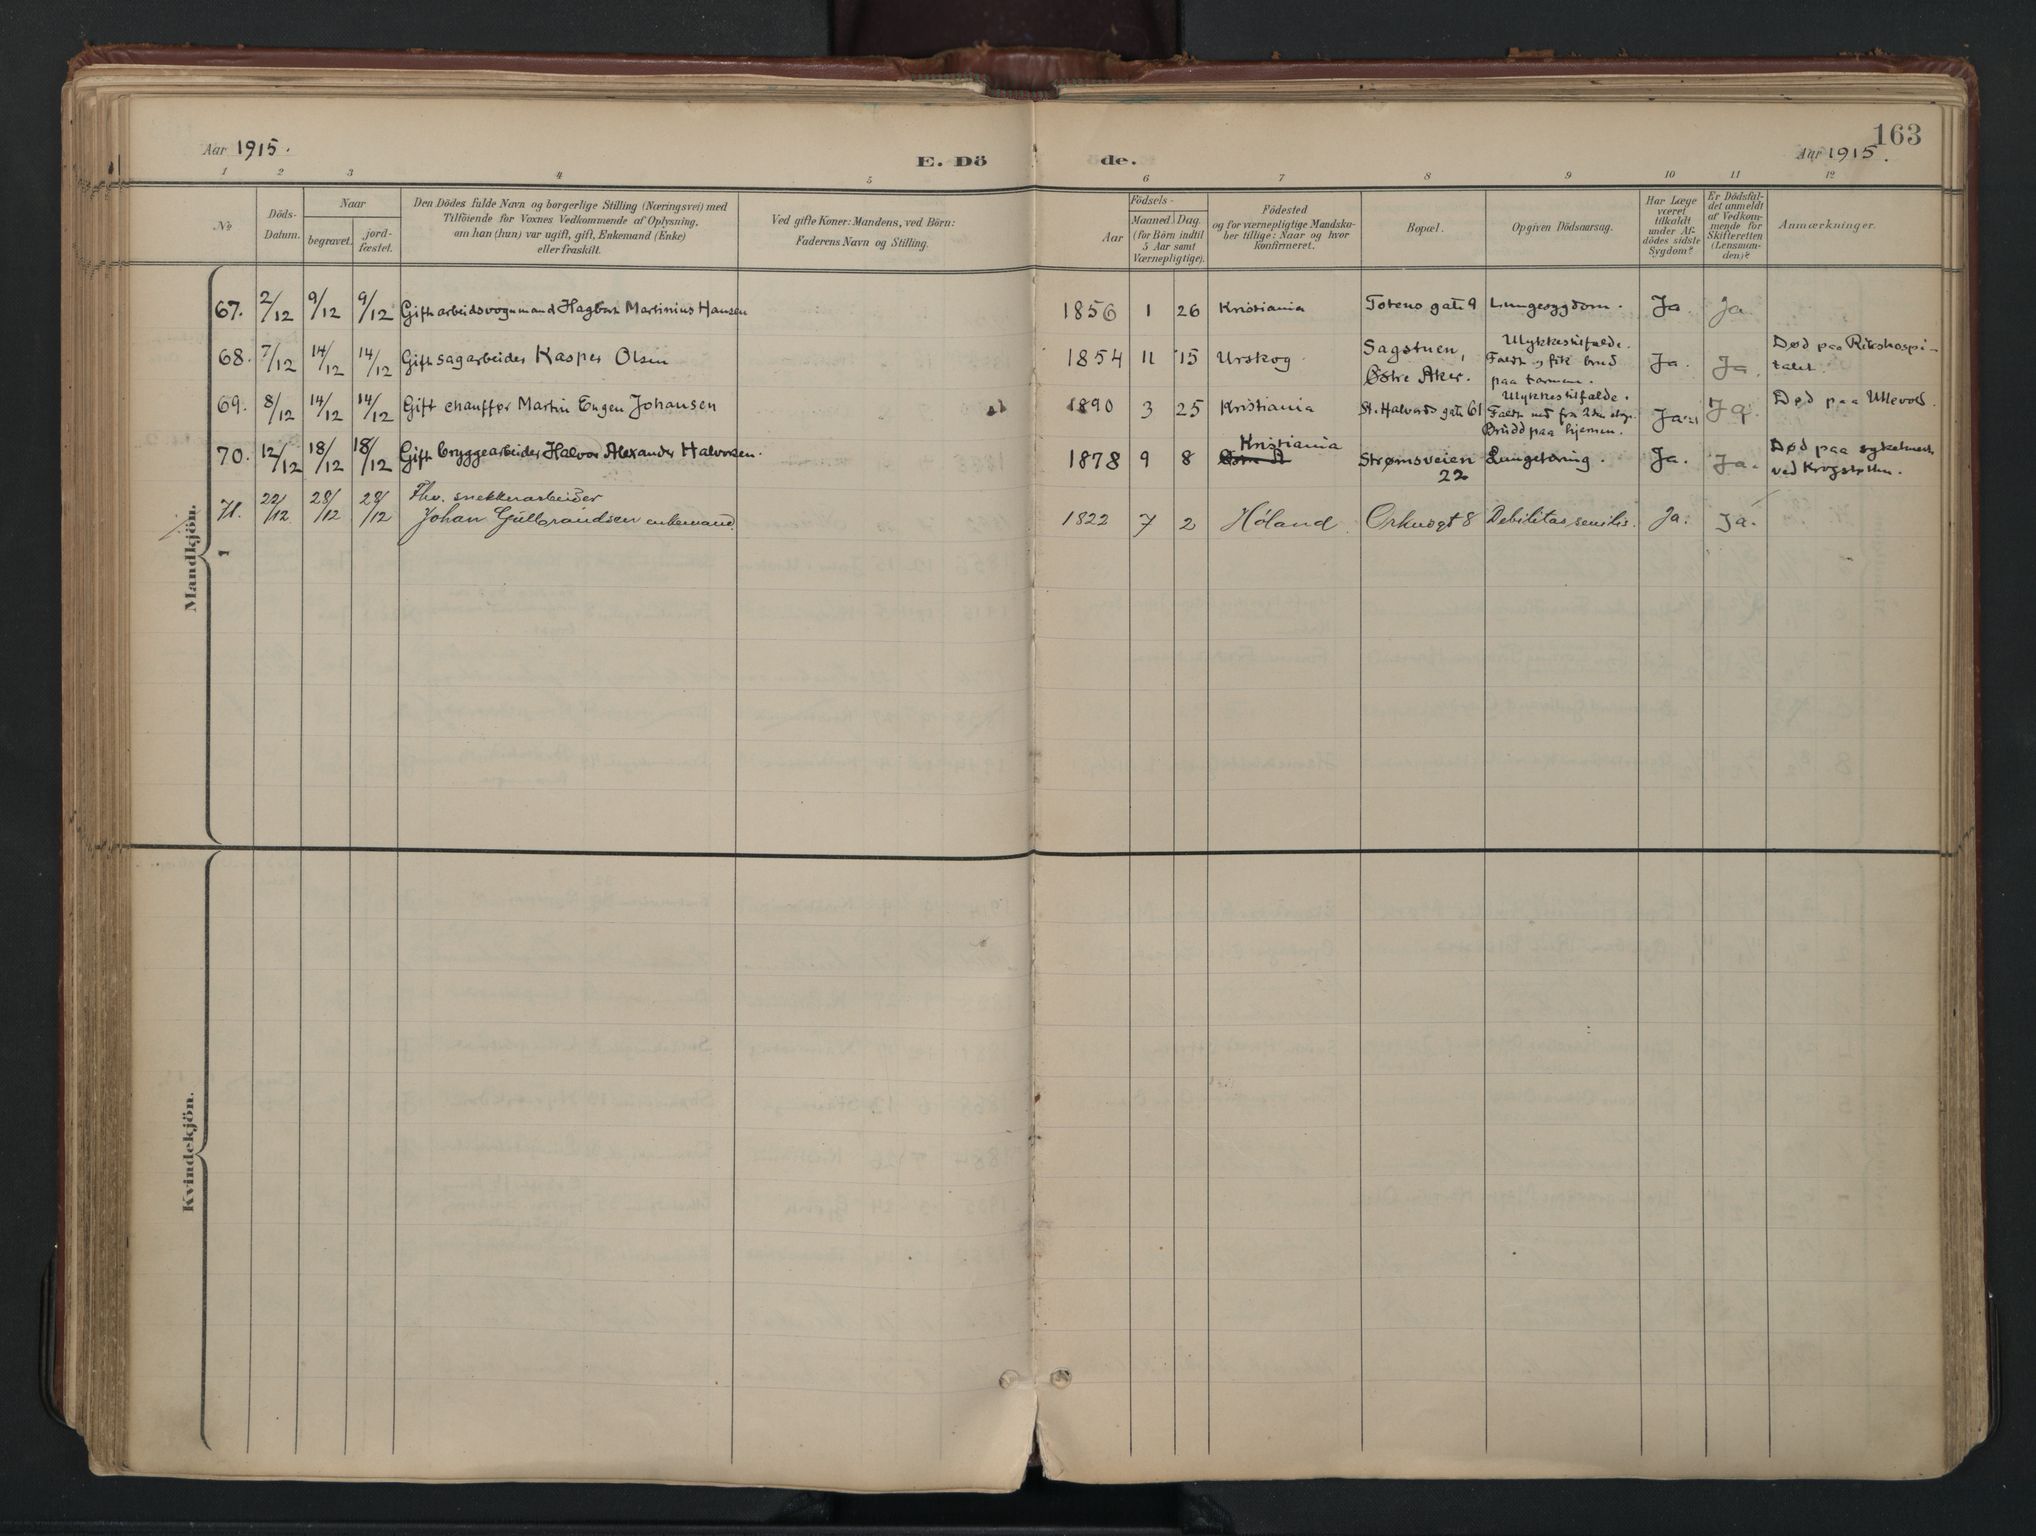 163
Aar 1915.
E. Dö de.
Aar 1915.
1 2 3 4 5 6 7 8 9 10 11 12
№
Döds-Datum.
Naar
begravet.
jord-fæstet.
Den Dödes fulde Navn og borgerlige Stilling (Næringsvei) med
Tilföiende for Voxnes Vedkommende af Oplysning,
om han (hun) var ugift, gift, Enkemand (Enke)
eller fraskilt.
Ved gifte Koner: Mandens, ved Börn:
Faderens Navn og Stilling.
Födsels-
Aar
Maaned Dag
(for Börn indtil
5 Aar samt
Værnepligtige).
Födested
og for værnepligtige Mandska-
ber tillige: Naar og hvor
konfirmeret.
Bopæl.
Opgiven Dödsaarsag.
Har Læge
været
tilkaldt
under Af-
dödes sidste
Sygdom?
Er Dödsfal-
det anmeldt
af Vedkom-
mende for
Skifteretten
(Lensman-
den)?
Anmærkninger.
Mandkjön.
67. 2/12 9/12 9/12 Gift arbeidsvognmand Hagbart Martinius Hansen 1856 1 26 Kristiania Totens gate 9 Lungesygdom. Ja. Ja
68. 7/12 14/12 14/12 Gift sagarbeider Kasper Olsen 1854 11 15 Urskog. Sagstuen, Østre Aker. Ulykkestilfælde. Faldt og fik brud paa tarmen. Ja. Ja. Død paa Rikshospi-
talet.
69. 8/12 14/12 14/12 Gift chauffør Martin Eugen Johansen 1890 3 25 Kristiania St. Halvards gate 61 Ulykkestilfælde. Faldt ned fra 2den etage. Brudd paa hjernen. Ja. Ja. Død paa Ullevold.
70. 12/12 18/12 18/12 Gift bryggearbeider Halvor Alexander Halvorsen. 1878 9 8 Kristiania Strømsveien 22 Lungetæring. Ja. Ja. Død paa sykehuset
ved Krogstøtten.
71. 22/12 28/12 28/12 Fhv. snekkerarbeider
Johan Gulbrandsen enkemand. 1822 7 2 Høland. Orknøgt 8 Debilitas senilis. Ja. Ja.
Kvindekjön.